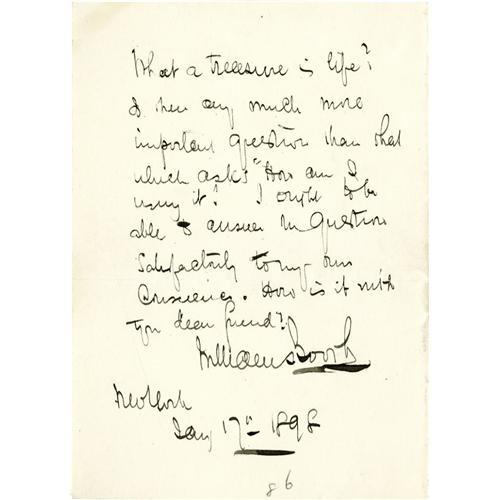 What a treasure is life?
Is there any much more
important question than that
which asks "How am I
using it? I ought to be
able to answer the Question
Satisfactorily to my own
Conscience. How is it with
you dear friend?
William Booth
New York
Jany 17th 1898
86